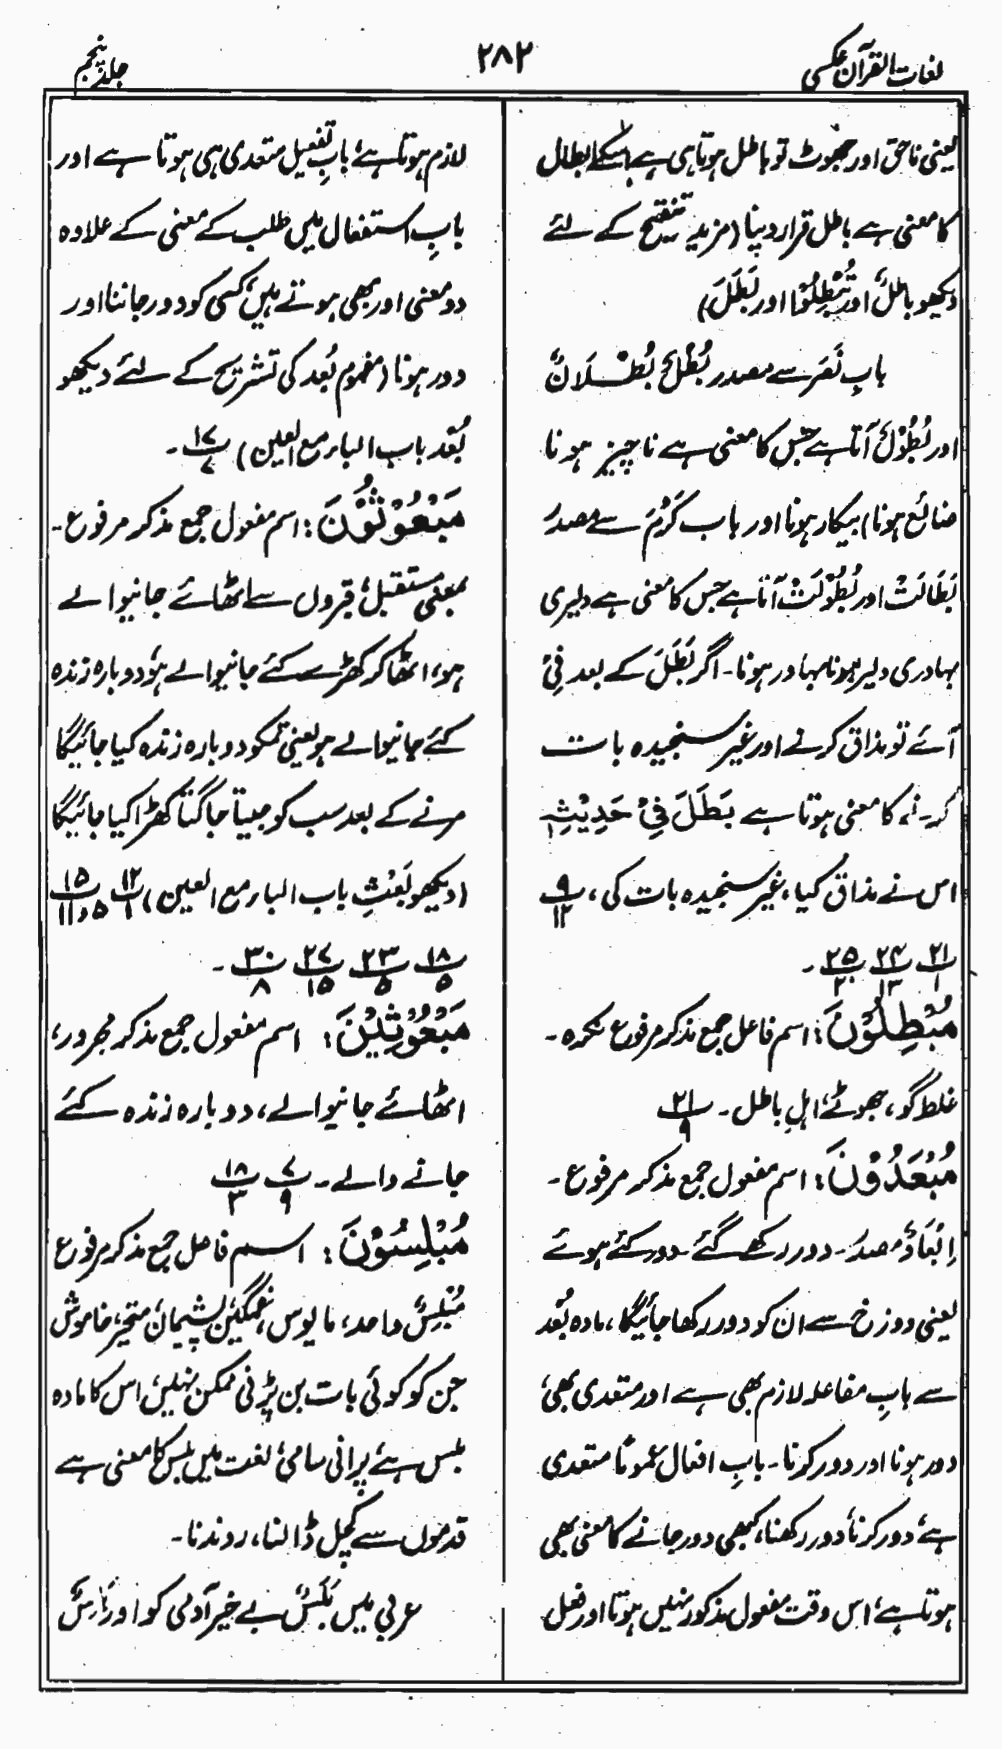 لغات القرآن عکسی
۲۸۲
جلد پنجم
یعنی ناحق اور جھوٹ تو باطل ہوتا ہی ہے اسکے ابطال
کا معنی ہے باطل قرار دینا (مزید تنقیح کے لئے
دیکھو باطلٌ اور تُبْطِلُوْا اور بَطَلَ)
بابِ نَصَرَ سے مصدر بُطْلٌ بُطْلَانٌ
اور بُطُوْلٌ آتا ہے جس کا معنی ہے ناچیز ہونا
ضائع ہونا، بیکار ہونا اور باب کَرُمَ سے مصدر
بَطَالَتْ اور بُطُوْلَتْ آتا ہے جس کا معنی ہے دلیری
بہادری دلیر ہونا بہادر ہونا۔ اگر بَطَلَ کے بعد فِیْ
آئے تو مذاق کرنے اور غیر سنجیدہ بات
کرنے کا معنی ہوتا ہے بَطَلَ فِیْ حَدِیْثِہٖ
اس نے مذاق کیا، غیر سنجیدہ بات کی، ۹/۱۲
۲۱/۱ ۲۴/۱۳ ۲۵/۲۰۔
مُبْطِلُوْنَ: اسم فاعل جمع مذکر مرفوع نکرہ۔
غلط گو، جھوٹے، اہلِ باطل۔ ۲۱/۹
مُبْعَدُوْنَ: اسم مفعول جمع مذکر مرفوع۔
اِبْعَادٌ مصدر۔ دور رکھے گئے۔ دور کئے ہوئے
یعنی دوزخ سے ان کو دور رکھا جائیگا، مادہ بُعْد
سے بابِ مفاعلہ لازم بھی ہے اور متعدی بھی،
دور ہونا اور دور کرنا۔ بابِ افعال عموماً متعدی
ہے، دور کرنا، دور رکھنا، کبھی دور جانے کا معنی بھی
ہوتا ہے، اس وقت مفعول مذکور نہیں ہوتا اور فعل
لازم ہوتا ہے، بابِ تفعیل متعدی ہی ہوتا ہے اور
بابِ استفعال میں طلب کے معنی کے علاوہ
دو معنی اور بھی ہوتے ہیں، کسی کو دور جاننا اور
دور ہونا (مفہوم بُعد کی تشریح کے لئے دیکھو
بُعْد باب الباء مع العین) ۱۷/۷۔
مَبْعُوْثُوْنَ: اسم مفعول جمع مذکر مرفوع۔
بمعنی مستقبل، قبروں سے اٹھائے جانیوالے
ہو، اٹھا کر کھڑے کئے جانیوالے ہو، دوبارہ زندہ
کئے جانیوالے ہو یعنی تمکو دوبارہ زندہ کیا جائیگا
مرنے کے بعد سب کو جیتا جاگتا کھڑا کیا جائیگا
(دیکھو بَعْثِ باب الباء مع العین) ۱۲/۱ ۱۵/۵و۱۱
۱۸/۵ ۲۳/۵ ۲۷/۱۵ ۳۰/۸۔
مَبْعُوْثِیْنَ: اسم مفعول جمع مذکر مجرور،
اٹھائے جانیوالے، دوبارہ زندہ کئے
جانے والے۔ ۷/۹ ۱۸/۳
مُبْلِسُوْنَ: اسم فاعل جمع مذکر مرفوع
مُبْلِسٌ واحد، مایوس، غمگین، پشیمان، متحیر، خاموش
جن کو کوئی بات بن پڑنی ممکن نہیں، اس کا مادہ
بلس ہے، پرانی سامی لغت میں بلس کا معنی ہے
قدموں سے کچل ڈالنا، روندنا۔
عربی میں بَلَسٌ بے خیر آدمی کو اور